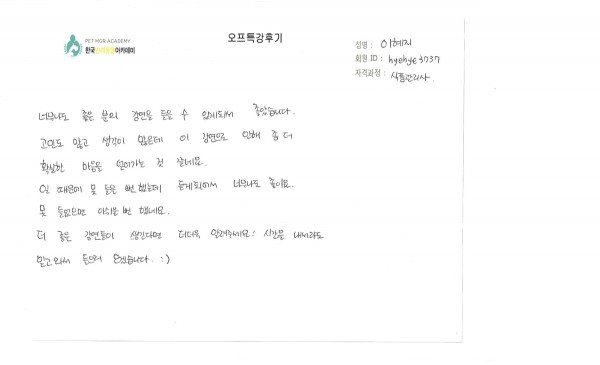 PET MGR ACADEMY
한국반려동물아카데미
오프특강후기
성명 : 이혜지
회원 ID : hyehye3737
자격과정 : 식품관리사.
너무나도 좋은 분의 강연을 들을 수 있게되서 좋았습니다.
고민도 많고 생각이 많은데 이 강연으로 인해 좀 더
확실한 마음을 얻어가는 것 같네요.
일 때문에 못 들을 뻔 했는데 듣게되어서 너무나도 좋아요.
못 들었으면 아쉬울 뻔 했네요.
더 좋은 강연들이 생긴다면 더더욱 알려주세요! 시간을 내서라도
믿고 와서 들으러 오겠습니다. :)